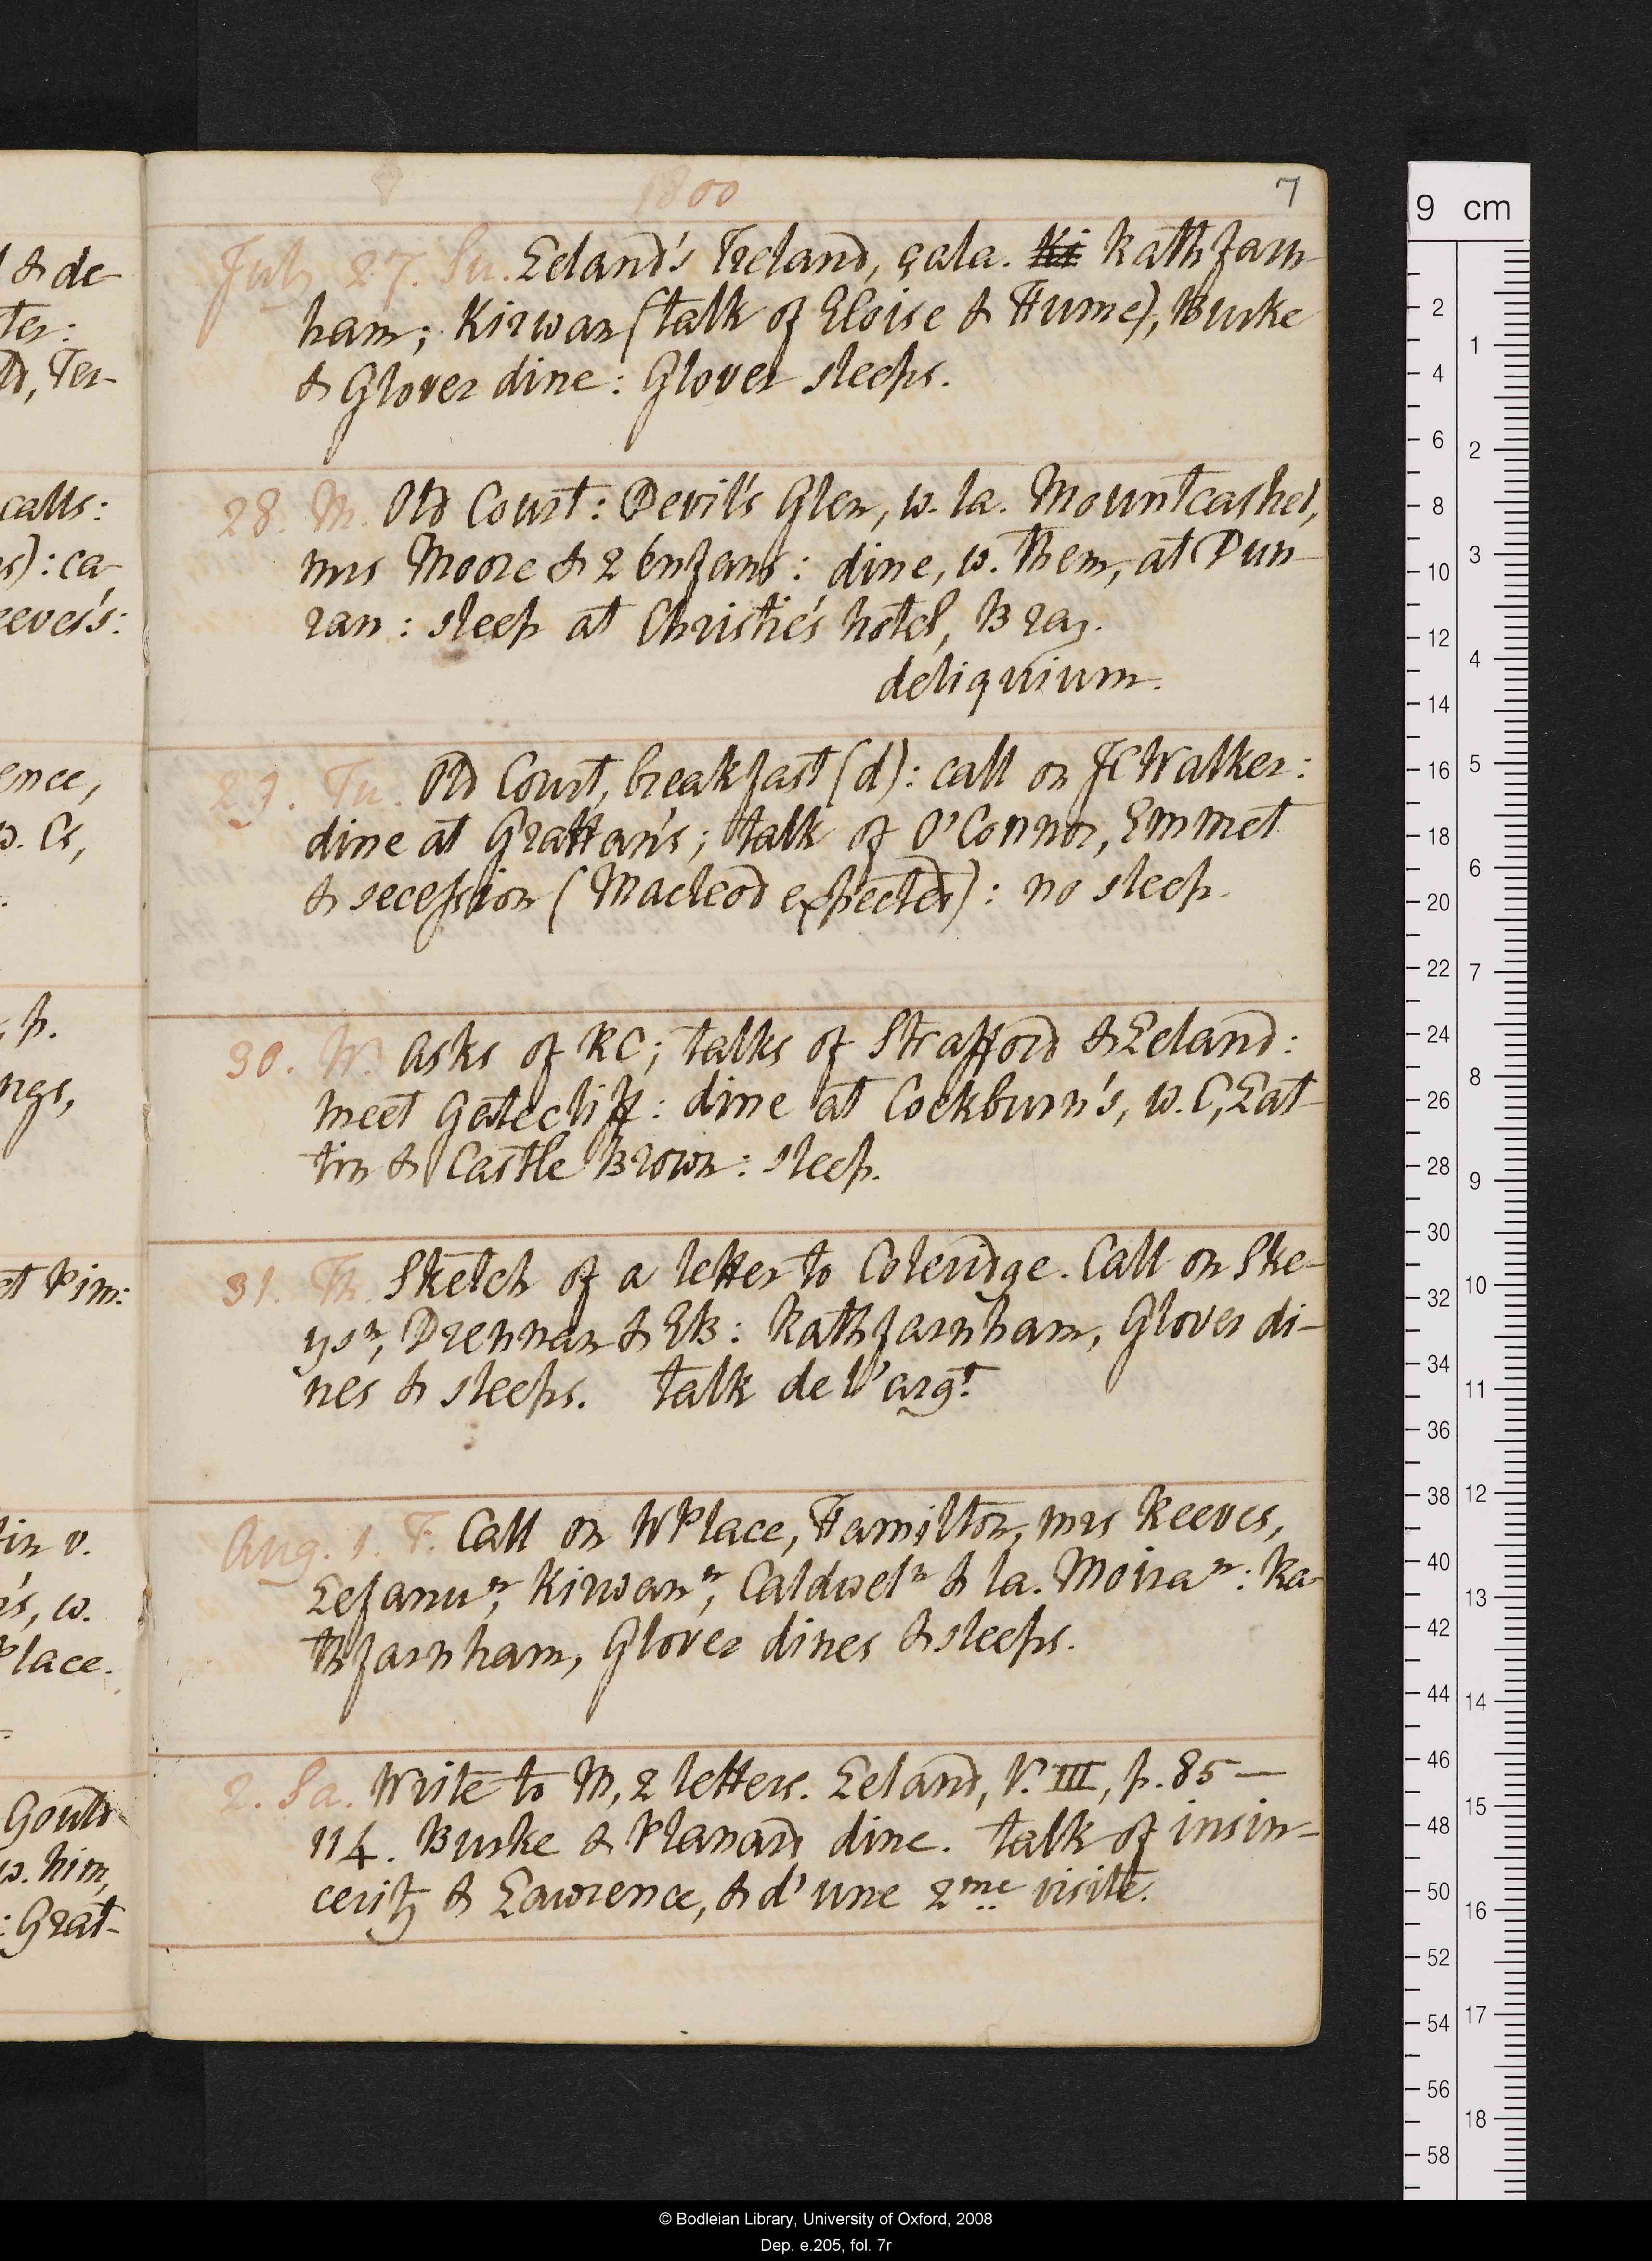 1800
7
July 27. Su. Leland's Ireland, çala. Ki Rathfarn-
ham; Kirwan (talk of Eloise & Hume), Burke
& Glover dine: Glover sleeps.
28. M. Old Court: Devil's Glen, w. la. Mountcashel,
mrs Moore & 2 enfans: dine, w. them, at Dun-
ran: sleep at Christie's hotel, Bray.
deliquium.
29. Tu. Old Court, breakfast (d): call on JC Walker:
dine at Grattan's; talk of O'Connor, Emmet
& secession (Macleod expected): no sleep.
30. W. Asks of RC; talks of Strafford & Leland:
meet Gatecliff: dine at Cockburn's, w. C, Lat-
tin & Castle Brown: sleep.
31. Th. Sketch of a letter to Coleridge. Call on Ske-
ysn, Drennan & EB: Rathfarnham, Glover di-
nes & sleeps. talk de l'argt.
Aug. 1. F. Call on W Place, Hamilton, mrs Reeves,
Lefanun, Kirwann, Caldweln & la. Moiran: Ra-
thfarnham, Glover dines & sleeps.
2. Sa. Write to M, 2 letters. Leland, V. III, p. 85—
114. Burke & Planard dine. talk of insin-
cerity & Lawrence, & d'une 2me visite.
l & de
ter:
ld, Ter-
calls:
s): ca-
eeves's:
ence,
w. Cs,
p.
ngs,
et Pim:
tin v.
n's, w.
Place.
Gould
w. him,
: Grat-
9 cm
2
4
6
8
10
12
14
16
18
20
22
24
26
28
30
32
34
36
38
40
42
44
46
48
50
52
54
56
58
1
2
3
4
5
6
7
8
9
10
11
12
13
14
15
16
17
18
© Bodleian Library, University of Oxford, 2008
Dep. e.205, fol. 7r